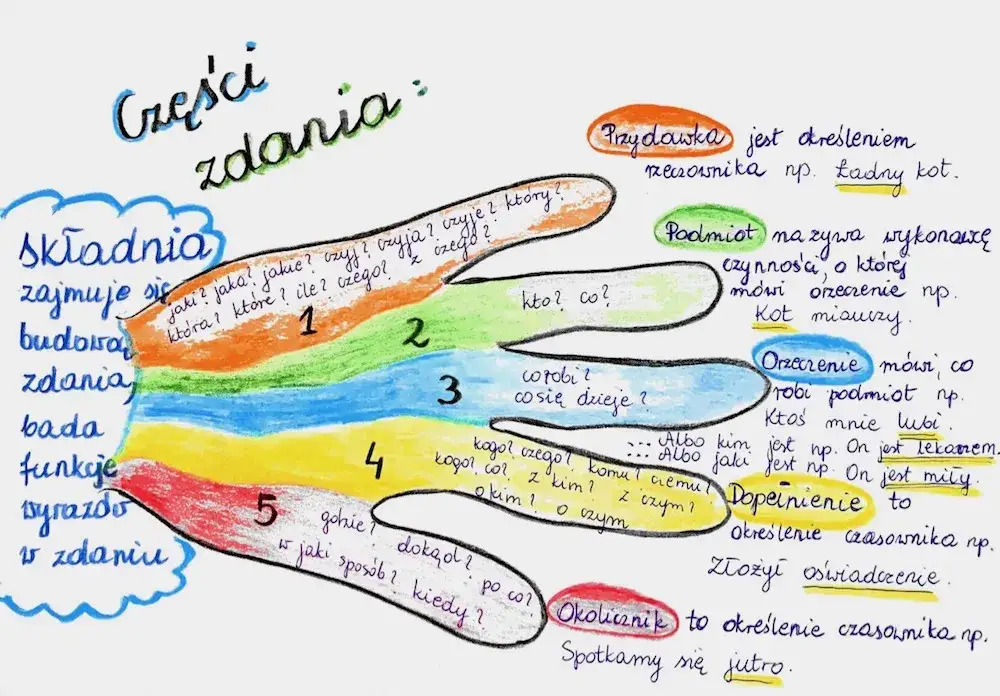 Części
zdania:
Składnia
zajmuje się
budową
zdania,
bada
funkcję
wyrazów
w zdaniu
jaki? jaka? jakie? czyj? czyja? czyje? który?
która? które? ile? czego? z czego?
1
2
kto? co?
3
co robi?
co się dzieje?
4
kogo? czego? komu? czemu?
kogo? co? z kim? z czym?
o kim? o czym
5
gdzie? dokąd? po co?
w jaki sposób? kiedy?
Przydawka jest określeniem
rzeczownika np. Ładny kot.
Podmiot nazywa wykonawcę
czynności, o której
mówi orzeczenie np.
Kot miauczy.
Orzeczenie mówi, co
robi podmiot np.
Ktoś mnie lubi.
... Albo kim jest np. On jest lekarzem.
... Albo jaki jest np. On jest miły.
Dopełnienie to
określenie czasownika np.
Złożył oświadczenie.
Okolicznik to określenie czasownika np.
Spotkamy się jutro.